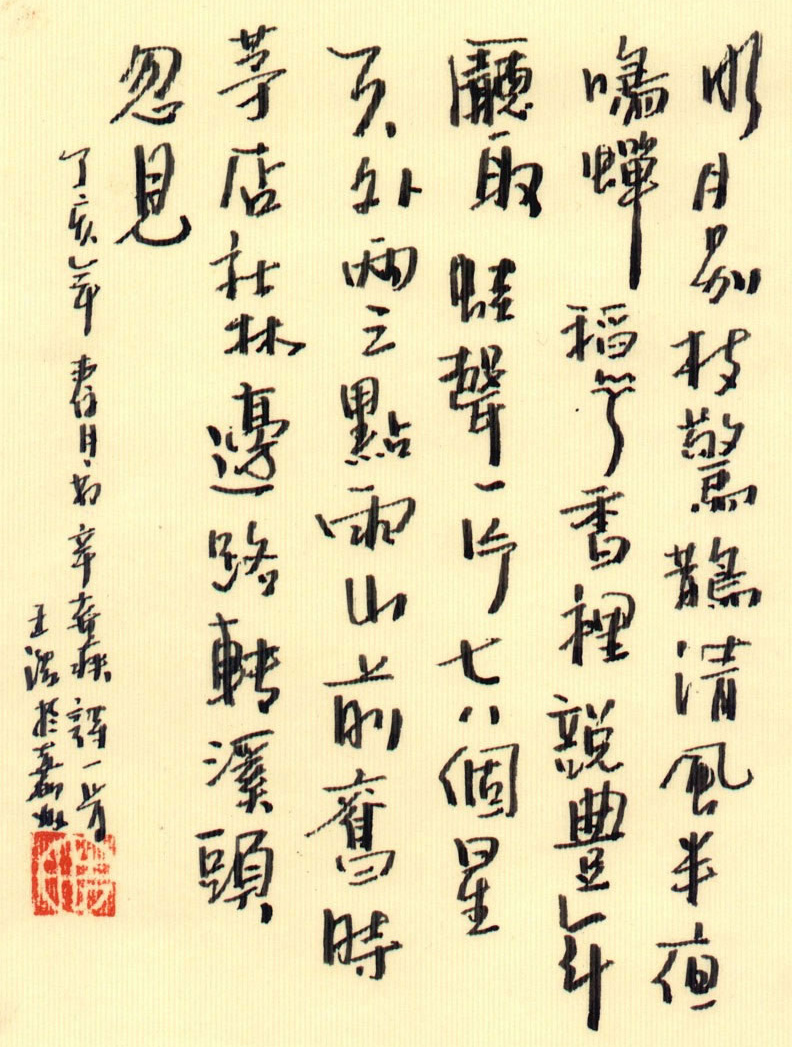 明月別枝驚鵲清風半夜
鳴蟬稻花香裡說豐年
廳取蛙聲一片七八個星
天外兩三點雨山前舊時
茅店社林邊路轉溪頭
忽見
丁亥年春月书辛棄疾詩一首
王於嘉